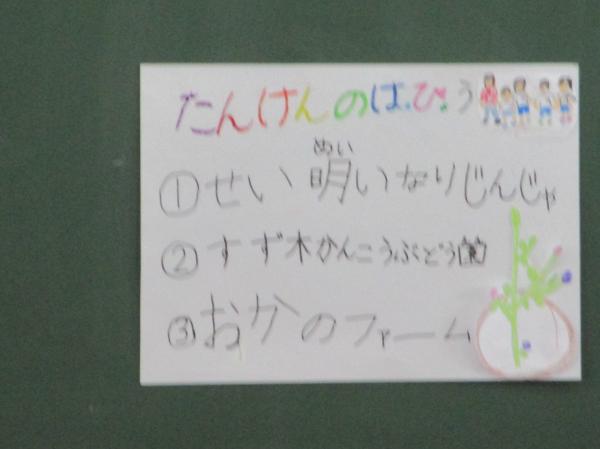 たんけんのはっぴょう
めい
①せい明いなりじんじゃ
②すず木かんこうぶどう園
③おかのファーム